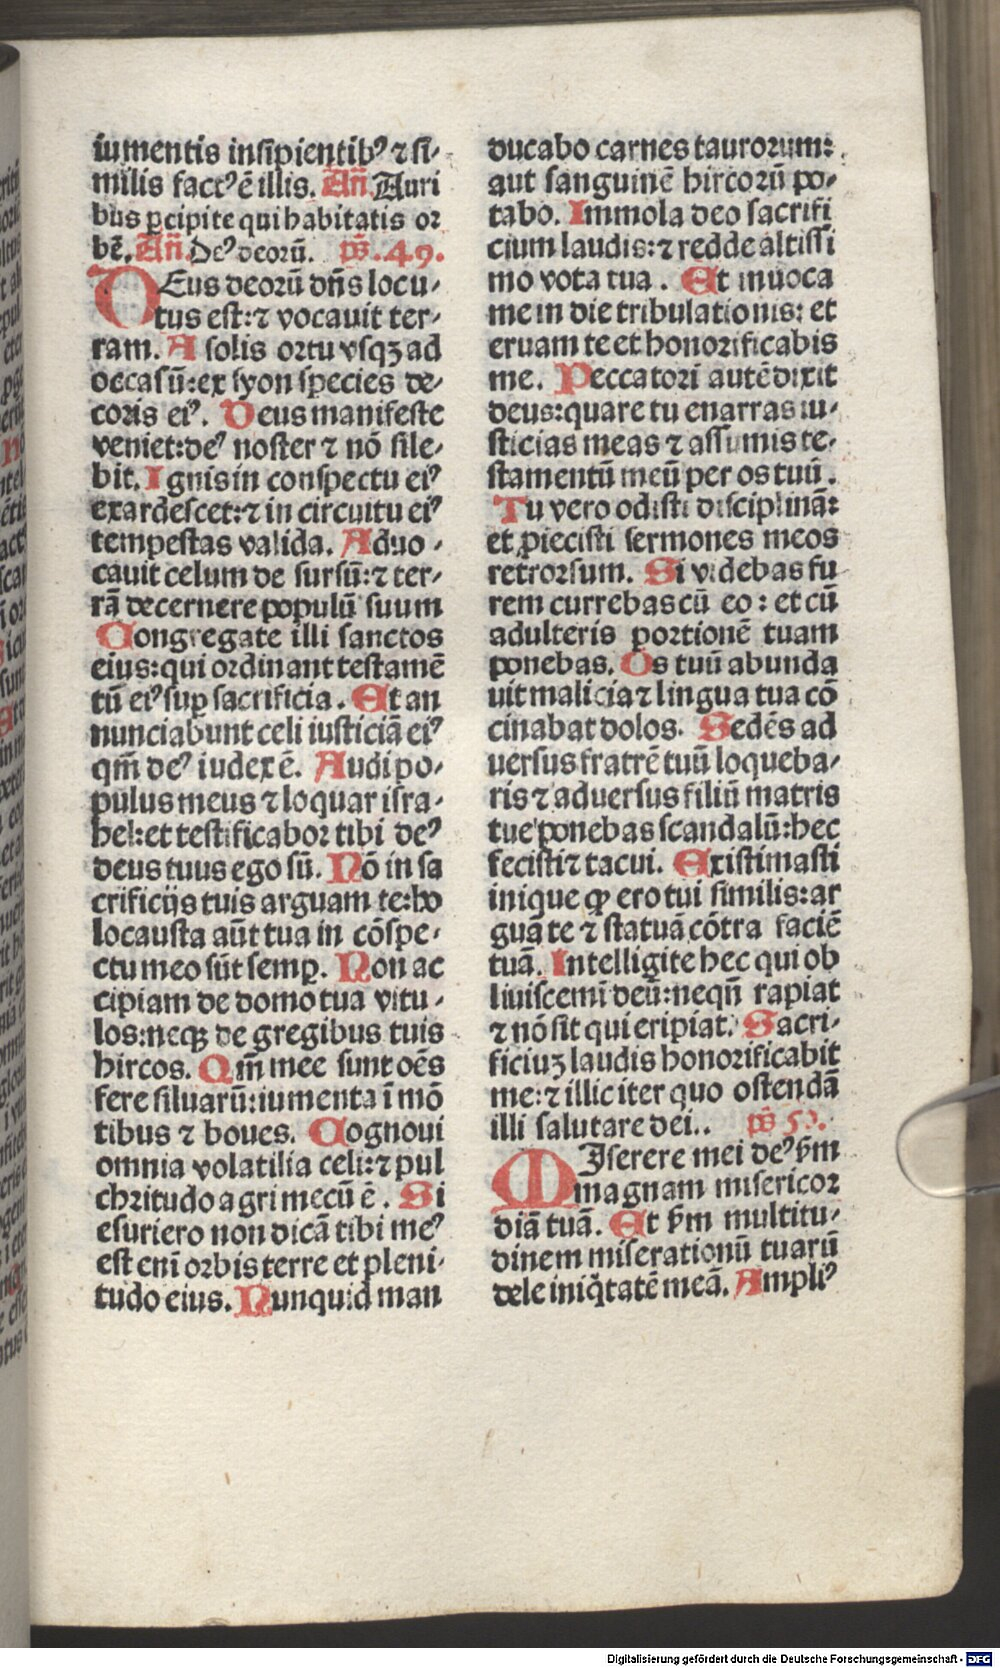 iumentis insipientibꝰ ⁊ si⸗
milis factꝰ ē illis. An̄. Auri
bus ꝑcipite qui habitatis or
bē. An̄. Deꝰ deorū. ps̄ .49.
DEus deorū dn̄s locu⸗
tus est:⁊ vocauit ter⸗
ram. A solis ortu vsqꝫ ad
occasū:ex syon species de⸗
coris eiꝰ. Deus manifeste
veniet:deꝰ noster ⁊ nō sile⸗
bit. Ignis in conspectu eiꝰ
exardescet:⁊ in circuitu eiꝰ
tempestas valida. Aduo⸗
cauit celum de sursū:⁊ ter⸗
rā decernere populū suum
Congregate illi sanctos
eius:qui ordinant testamē
tū eiꝰ suꝑ sacrificia. Et an
nunciabunt celi iusticiā eiꝰ
qm̄ deꝰ iudex ē. Audi po⸗
pulus meus ⁊ loquar isra⸗
hel:et testificabor tibi deꝰ
deus tuus ego sū. Nō in sa
crificijs tuis arguam te:ho
locausta aūt tua in cōspe⸗
ctu meo sūt semꝑ. Non ac
cipiam de domo tua vitu⸗
los:neqꝫ de gregibus tuis
hircos. Qm̄ mee sunt oēs
fere siluarū:iumenta ī mō
tibus ⁊ boues. Cognoui
omnia volatilia celi:⁊ pul
chritudo agri mecū ē. Si
esuriero non dicā tibi meꝰ
est eni orbis terre et pleni⸗
tudo eius. Nunquid man
ducabo carnes taurorum:
aut sanguinē hircorū po⸗
tabo. Immola deo sacrifi
cium laudis:⁊ redde altissi
mo vota tua. Et inuoca
me in die tribulationis: et
eruam te et honorificabis
me. Peccatori autē dixit
deus:quare tu enarras iu⸗
sticias meas ⁊ assumis te⸗
stamentū meū per os tuū.
Tu vero odisti disciplinā:
et ꝓiecisti sermones meos
retrorsum. Si videbas fu
rem currebas cū eo: et cū
adulteris portionē tuam
ponebas. Os tuū abunda
uit malicia ⁊ lingua tua cō
cinabat dolos. Sedēs ad
uersus fratrē tuū loqueba⸗
ris ⁊ aduersus filiū matris
tue ponebas scandalū:hec
fecisti ⁊ tacui. Existimasti
inique ꝙ ero tui similis:ar
guā te ⁊ statuā cōtra faciē
tuā. Intelligite hec qui ob
liuiscemī deū:neqn̄ rapiat
⁊ nō sit qui eripiat. Sacri⸗
ficiuꝫ laudis honorificabit
me:⁊ illic iter quo ostendā
illi salutare dei.. ps̄ 50.
MIserere mei deꝰ ẜm
magnam misericor
diā tuā. Et ẜm multitu⸗
dinem miserationū tuarū
dele iniq̇tatē meā. Ampliꝰ
Digitalisierung gefördert durch die Deutsche Forschungsgemeinschaft - DFG